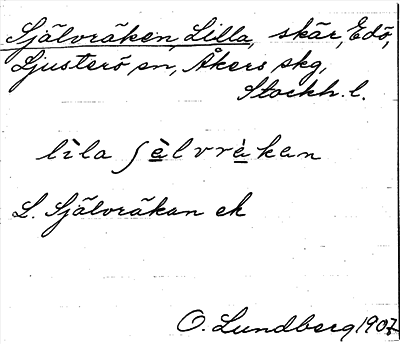 Självräken, Lilla, skär, Edö,
Ljusterö sn, Åkers skg,
Stockh. l.
lìla ʃà̲lvrà̲kan
L. Självräkan ek
O. Lundberg 1907